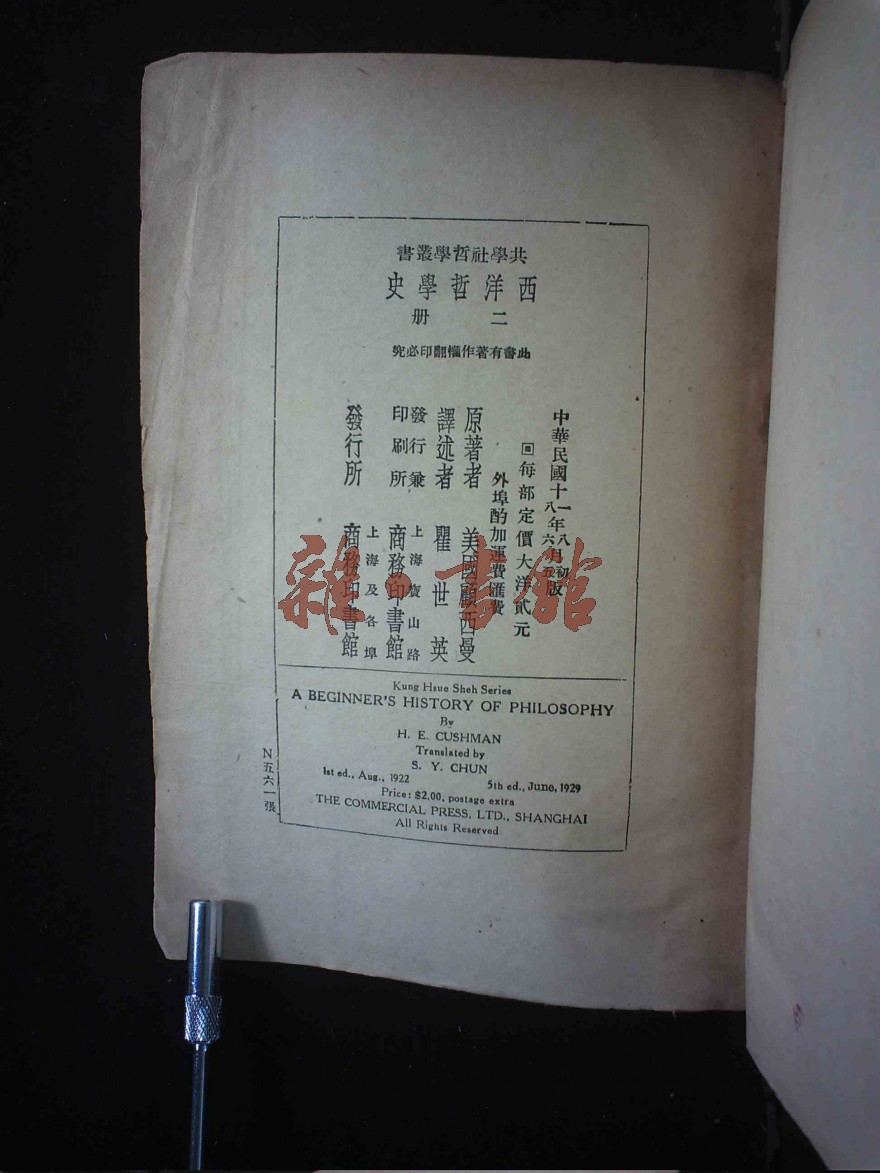 共學社哲學叢書
西洋哲學史
二册
此書有著作權翻印必究
中華民國十一年八月初版
八年六月五版
回每部定價大洋貳元
外埠酌加運費匯費
原著者 美國顧西曼
譯述者 瞿世英
發行兼印刷所 上海寶山路 商務印書館
發行所 上海及各埠 商務印書館
Kung Hsue Sheh Series
A BEGINNER'S HISTORY OF PHILOSOPHY
By
H. E. CUSHMAN
Translated by
S. Y. CHUN
1st ed., Aug., 1922 5th ed., June, 1929
Price: $2.00, postage extra
THE COMMERCIAL PRESS, LTD., SHANGHAI
All Rights Reserved
N五六一張
雜·書館